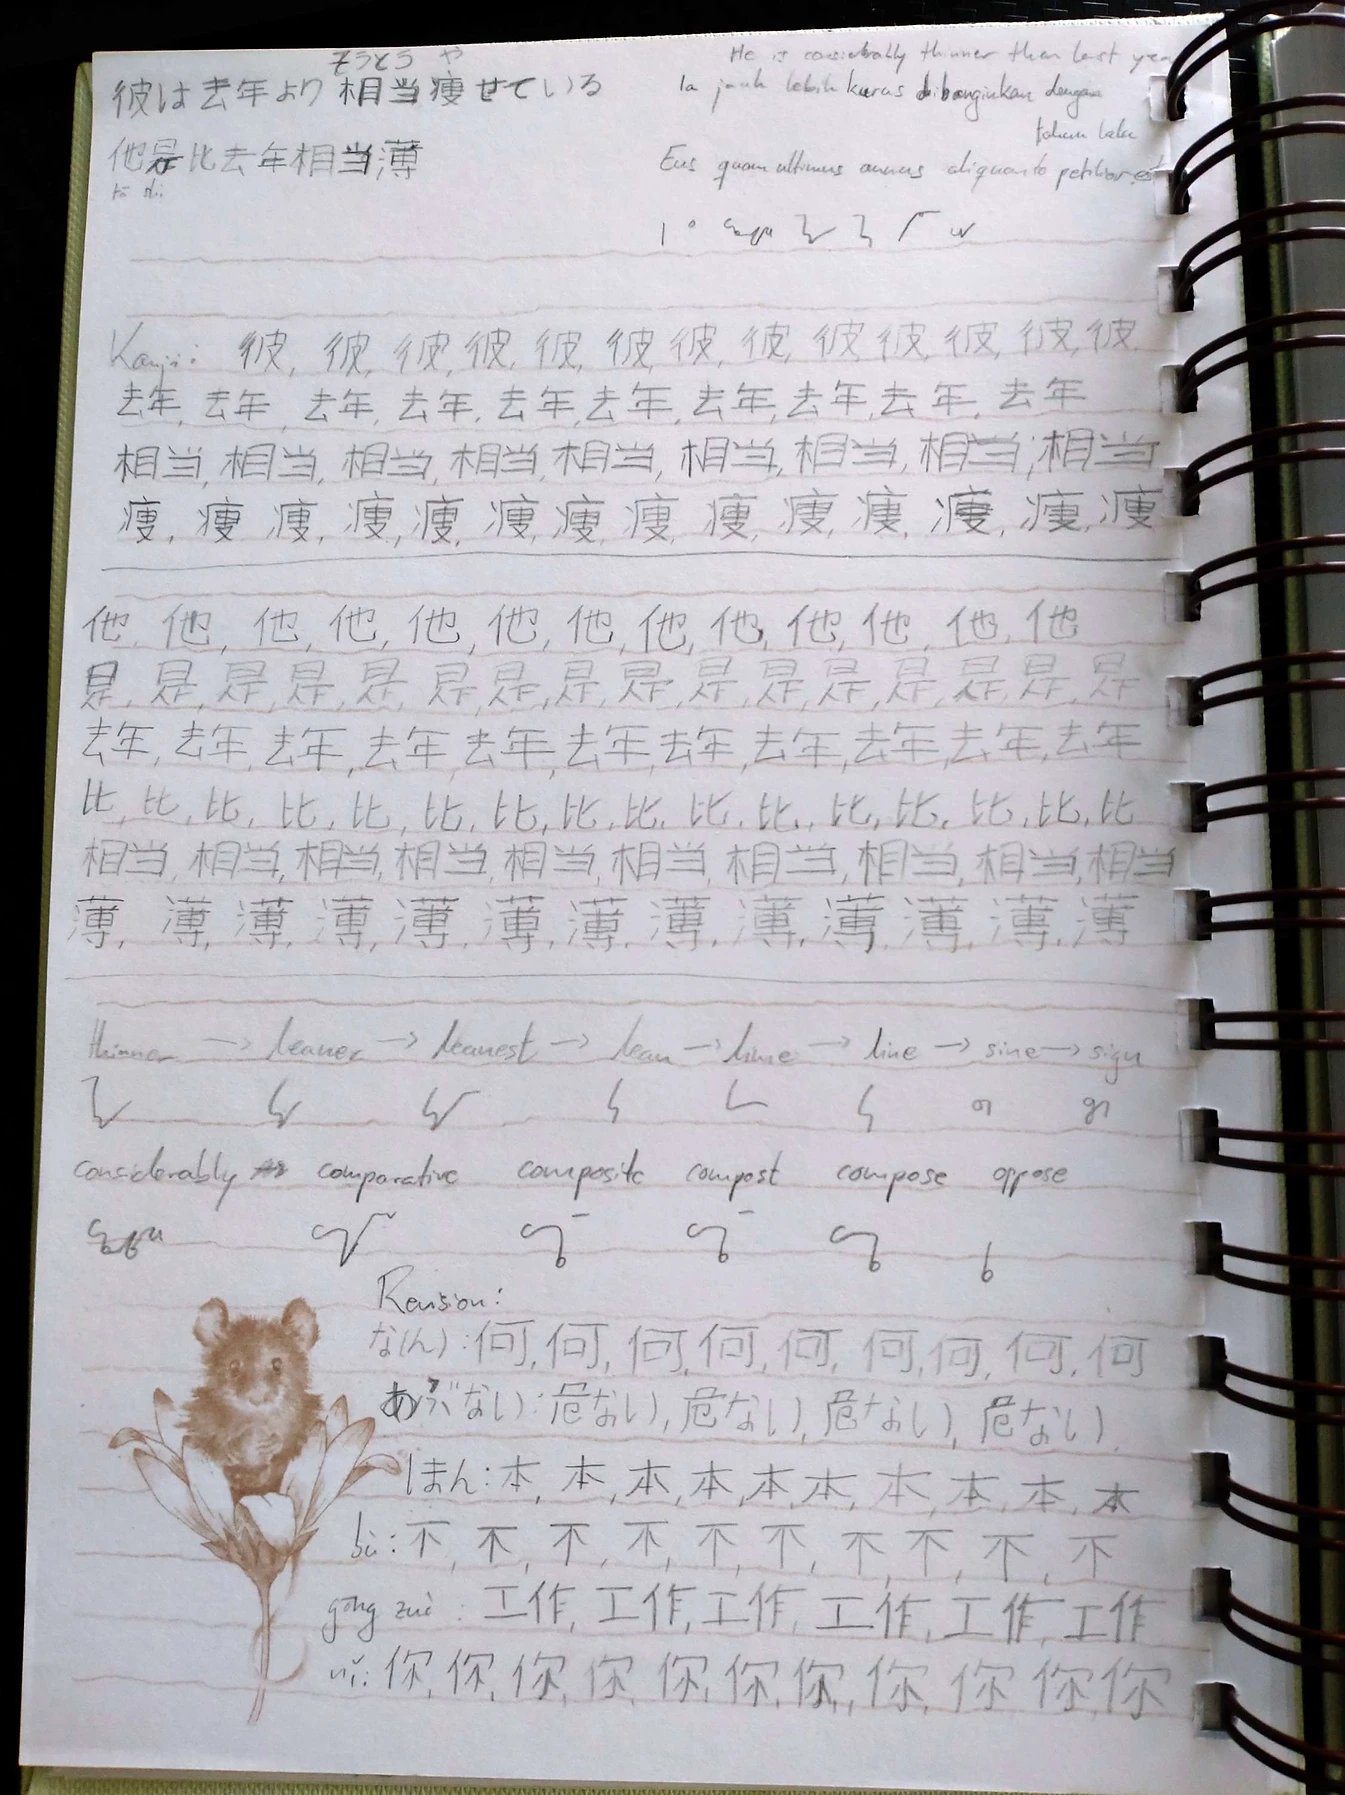 そうとう や
彼は去年より相当痩せている
He is considerably thinner than last year
Ia jauh lebih kurus dibanginkan dengan
tahun lalu
他是比去年相当薄
tā shì
Eus quam ultimus annus aliquanto petilior est
Kanji: 彼, 彼, 彼, 彼, 彼, 彼, 彼, 彼, 彼, 彼, 彼, 彼, 彼
去年, 去年, 去年, 去年, 去年, 去年, 去年, 去年, 去年, 去年
相当, 相当, 相当, 相当, 相当, 相当, 相当, 相当, 相当
痩, 痩, 痩, 痩, 痩, 痩, 痩, 痩, 痩, 痩, 痩, 痩, 痩, 痩
他, 他, 他, 他, 他, 他, 他, 他, 他, 他, 他, 他, 他
是, 是, 是, 是, 是, 是, 是, 是, 是, 是, 是, 是, 是, 是, 是, 是
去年, 去年, 去年, 去年, 去年, 去年, 去年, 去年, 去年, 去年, 去年
比, 比, 比, 比, 比, 比, 比, 比, 比, 比, 比, 比, 比, 比, 比, 比
相当, 相当, 相当, 相当, 相当, 相当, 相当, 相当, 相当, 相当
薄, 薄, 薄, 薄, 薄, 薄, 薄, 薄, 薄, 薄, 薄, 薄, 薄
thinner → leaner → leanest → lean → lime → line → sine → sign
considerably comparative composite compost compose oppose
Revision:
なん): 何, 何, 何, 何, 何, 何, 何, 何, 何
あぶない): 危ない), 危ない), 危ない), 危ない)
ほん: 本, 本, 本, 本, 本, 本, 本, 本, 本, 本
bù: 不, 不, 不, 不, 不, 不, 不, 不, 不, 不
gōng zuò: 工作, 工作, 工作, 工作, 工作, 工作
nǐ: 你, 你, 你, 你, 你, 你, 你, 你, 你, 你, 你